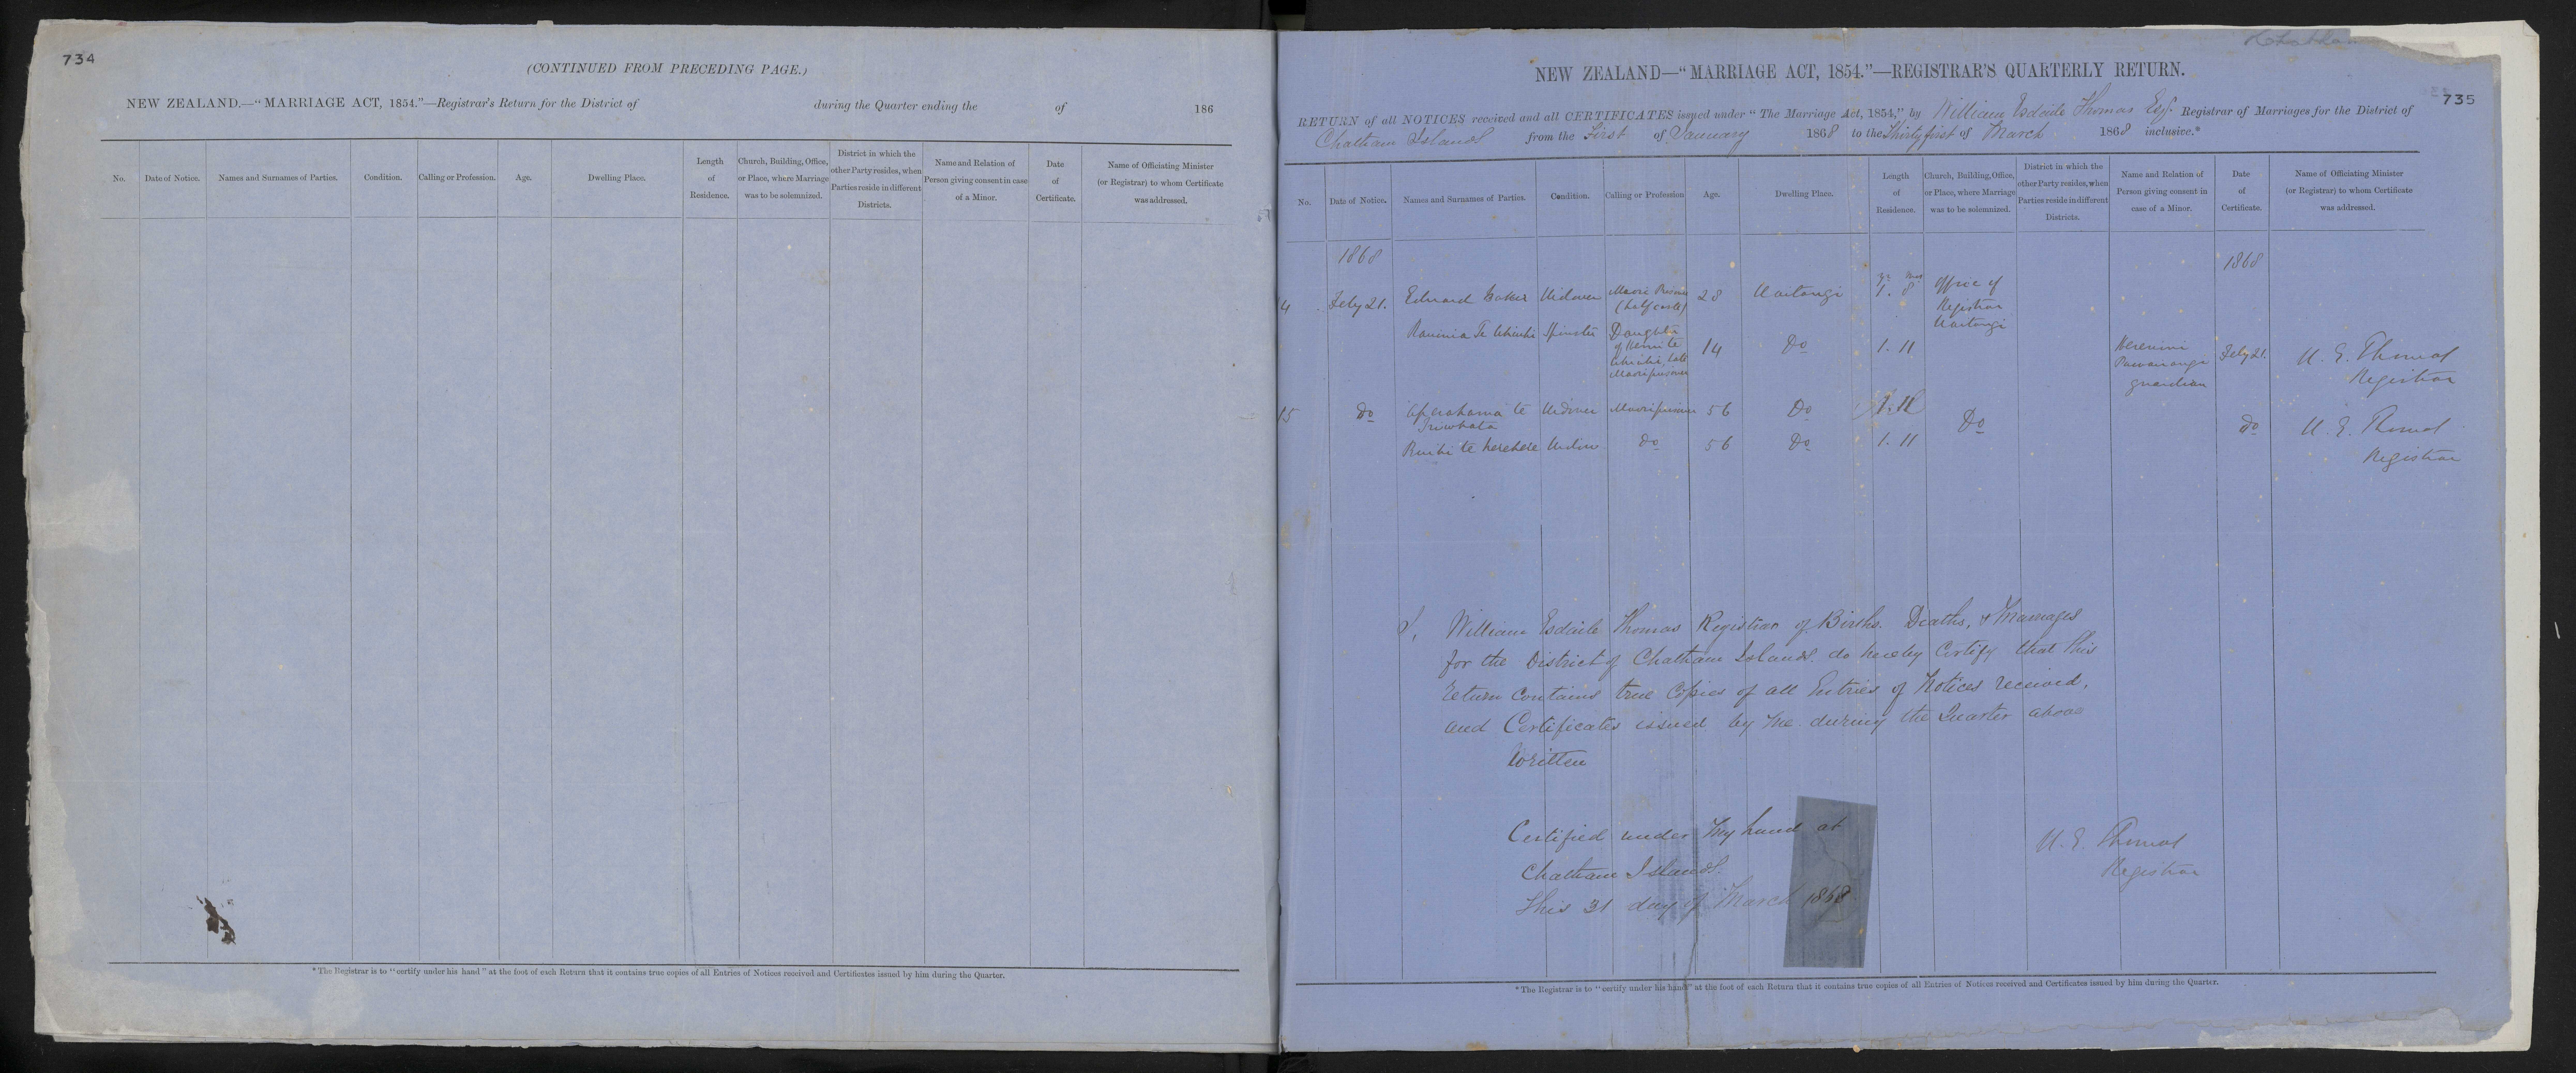 734
(CONTINUED FROM PRECEDING PAGE.)
NEW ZEALAND.—"MARRIAGE ACT, 1854."—Registrar's Return for the District of during the Quarter ending the of 186
No. Date of Notice. Names and Surnames of Parties. Condition. Calling or Profession. Age. Dwelling Place. Length of Residence. Church, Building, Office, or Place, where Marriage was to be solemnized. District in which the other Party resides, when Parties reside in different Districts. Name and Relation of Person giving consent in case of a Minor. Date of Certificate. Name of Officiating Minister (or Registrar) to whom Certificate was addressed.
* The Registrar is to "certify under his hand" at the foot of each Return that it contains true copies of all Entries of Notices received and Certificates issued by him during the Quarter.
735
NEW ZEALAND—"MARRIAGE ACT, 1854."—REGISTRAR'S QUARTERLY RETURN.
RETURN of all NOTICES received and all CERTIFICATES issued under "The Marriage Act, 1854," by William Esdaile Thomas Esq. Registrar of Marriages for the District of
Chatham Islands from the First of January 1868 to the Thirty first of March 1868 inclusive.*
No. Date of Notice. Names and Surnames of Parties. Condition. Calling or Profession Age. Dwelling Place. Length of Residence. Church, Building, Office, or Place, where Marriage was to be solemnized. District in which the other Party resides, when Parties reside in different Districts. Name and Relation of Person giving consent in case of a Minor. Date of Certificate. Name of Officiating Minister (or Registrar) to whom Certificate was addressed.
1868 1868
4 Feby 21. Edward Baker Widower Maori Prisoner (half caste) 28 Waitangi 1. 8 Office of Registrar Waitangi
Spinster Daughter of 14 Do 1. 11 guardian Feby 21. W. E. Thomas Registrar
15 Do Aperahama te Widower Maori prisoner 56 Do 1. 11 Do Do W. E. Thomas Registrar
te Kerekere Widow Do 56 Do 1. 11
I, William Esdaile Thomas Registrar of Births. Deaths, & Marriages
for the District of Chatham Islands. do hereby Certify that this
return contains true Copies of all Entries of Notices received,
and Certificates issued by me during the Quarter above
written
Certified under my hand at
Chatham Islands.
This 31 day of March 1868.
W. E. Thomas
Registrar
* The Registrar is to "certify under his hand" at the foot of each Return that it contains true copies of all Entries of Notices received and Certificates issued by him during the Quarter.